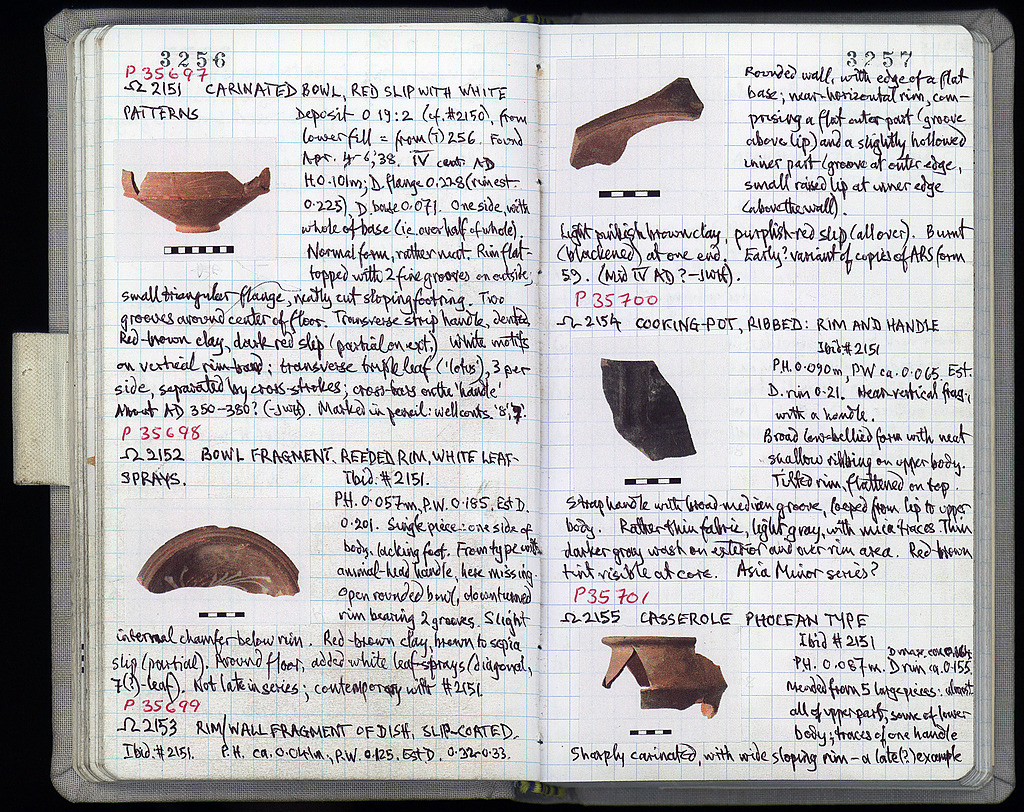 3256
P 35697
Ω 2151 CARINATED BOWL, RED SLIP WITH WHITE
PATTERNS
Deposit O 19:2 (cf. #2150), from
lower fill = from (?) 256. Found
Apr. 4-6,'38. IV cent. AD
H 0.101m; D. flange 0.228 (rim est.
0.225), D. base 0.071. One side, with
whole of base (i.e. over half of whole).
Normal form, rather neat. Rim flat-
topped with 2 fine grooves on outside;
small triangular flange, neatly cut sloping footring. Two
grooves around center of floor. Transverse strip handle, dented.
Red-brown clay, dark red slip (partial on ext.) White motifs
on vertical rim-band: transverse triple leaf ('lotus'), 3 per
side, separated by cross-strokes; cross-bars on the 'handle'
About AD 350-380? (-JWH). Marked in pencil: well conts. '8'
P 35698
Ω 2152 BOWL FRAGMENT, REEDED RIM, WHITE LEAF-
SPRAYS.
Ibid. #2151.
PH. 0.057m, P.W. 0.185, Est D.
0.201. Single piece: one side of
body, lacking foot. From type with
animal-head handle, here missing.
Open rounded bowl, downturned
rim bearing 2 grooves. Slight
internal chamfer below rim. Red-brown clay, brown to sepia
slip (partial). Around floor, added white leaf-sprays (diagonal,
7(?)-leaf). Not late in series; contemporary with #2151.
P 35699
Ω 2153 RIM/WALL FRAGMENT OF DISH, SLIP-COATED.
Ibid. #2151. P.H. ca. 0.041m., P.W. 0.125. Est D. 0.32-0.33.
3257
Rounded wall, with edge of a flat
base; near-horizontal rim, com-
prising a flat outer part (groove
above lip) and a slightly hollowed
inner part (groove at outer edge,
small raised lip at inner edge
(above the wall).
Light pinkish brown clay, purplish-red slip (all over). Burnt
(blackened) at one end. Early? variant of copies of ARS form
59. (Mid IV AD? -JWH).
P 35700
Ω 2154 COOKING-POT, RIBBED: RIM AND HANDLE
Ibid #2151
P.H. 0.090m, PW ca. 0.065, Est.
D. rim 0.21. Near-vertical frag.
with a handle.
Broad low-bellied form with neat
shallow ribbing on upper body.
Tilted rim, flattened on top.
Strap handle with broad median groove, looped from lip to upper
body. Rather thin fabric, light gray, with mica traces. Thin
darker gray wash on exterior and over rim area. Red-brown
tint visible at core. Asia Minor series?
P 35701
Ω 2155 CASSEROLE PHOCEAN TYPE
Ibid #2151
D max. ca.
PH. 0.087m. D rim ca. 0.155
Mended from 5 large pieces: almost
all of upper part, some of lower
body; traces of one handle
Sharply carinated, with wide sloping rim - a late(?) example